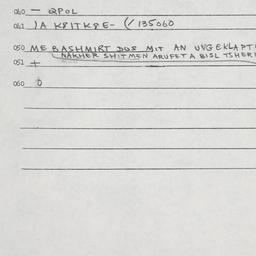 060 — QPOL
061 ) A K8ITK8E- (/ 135060
050 ME BASHMIRT DOS MIT AN UVGEKLAPT
NAKHER SHITMEN ARUFET A BISL TSHER
051 +
060 0